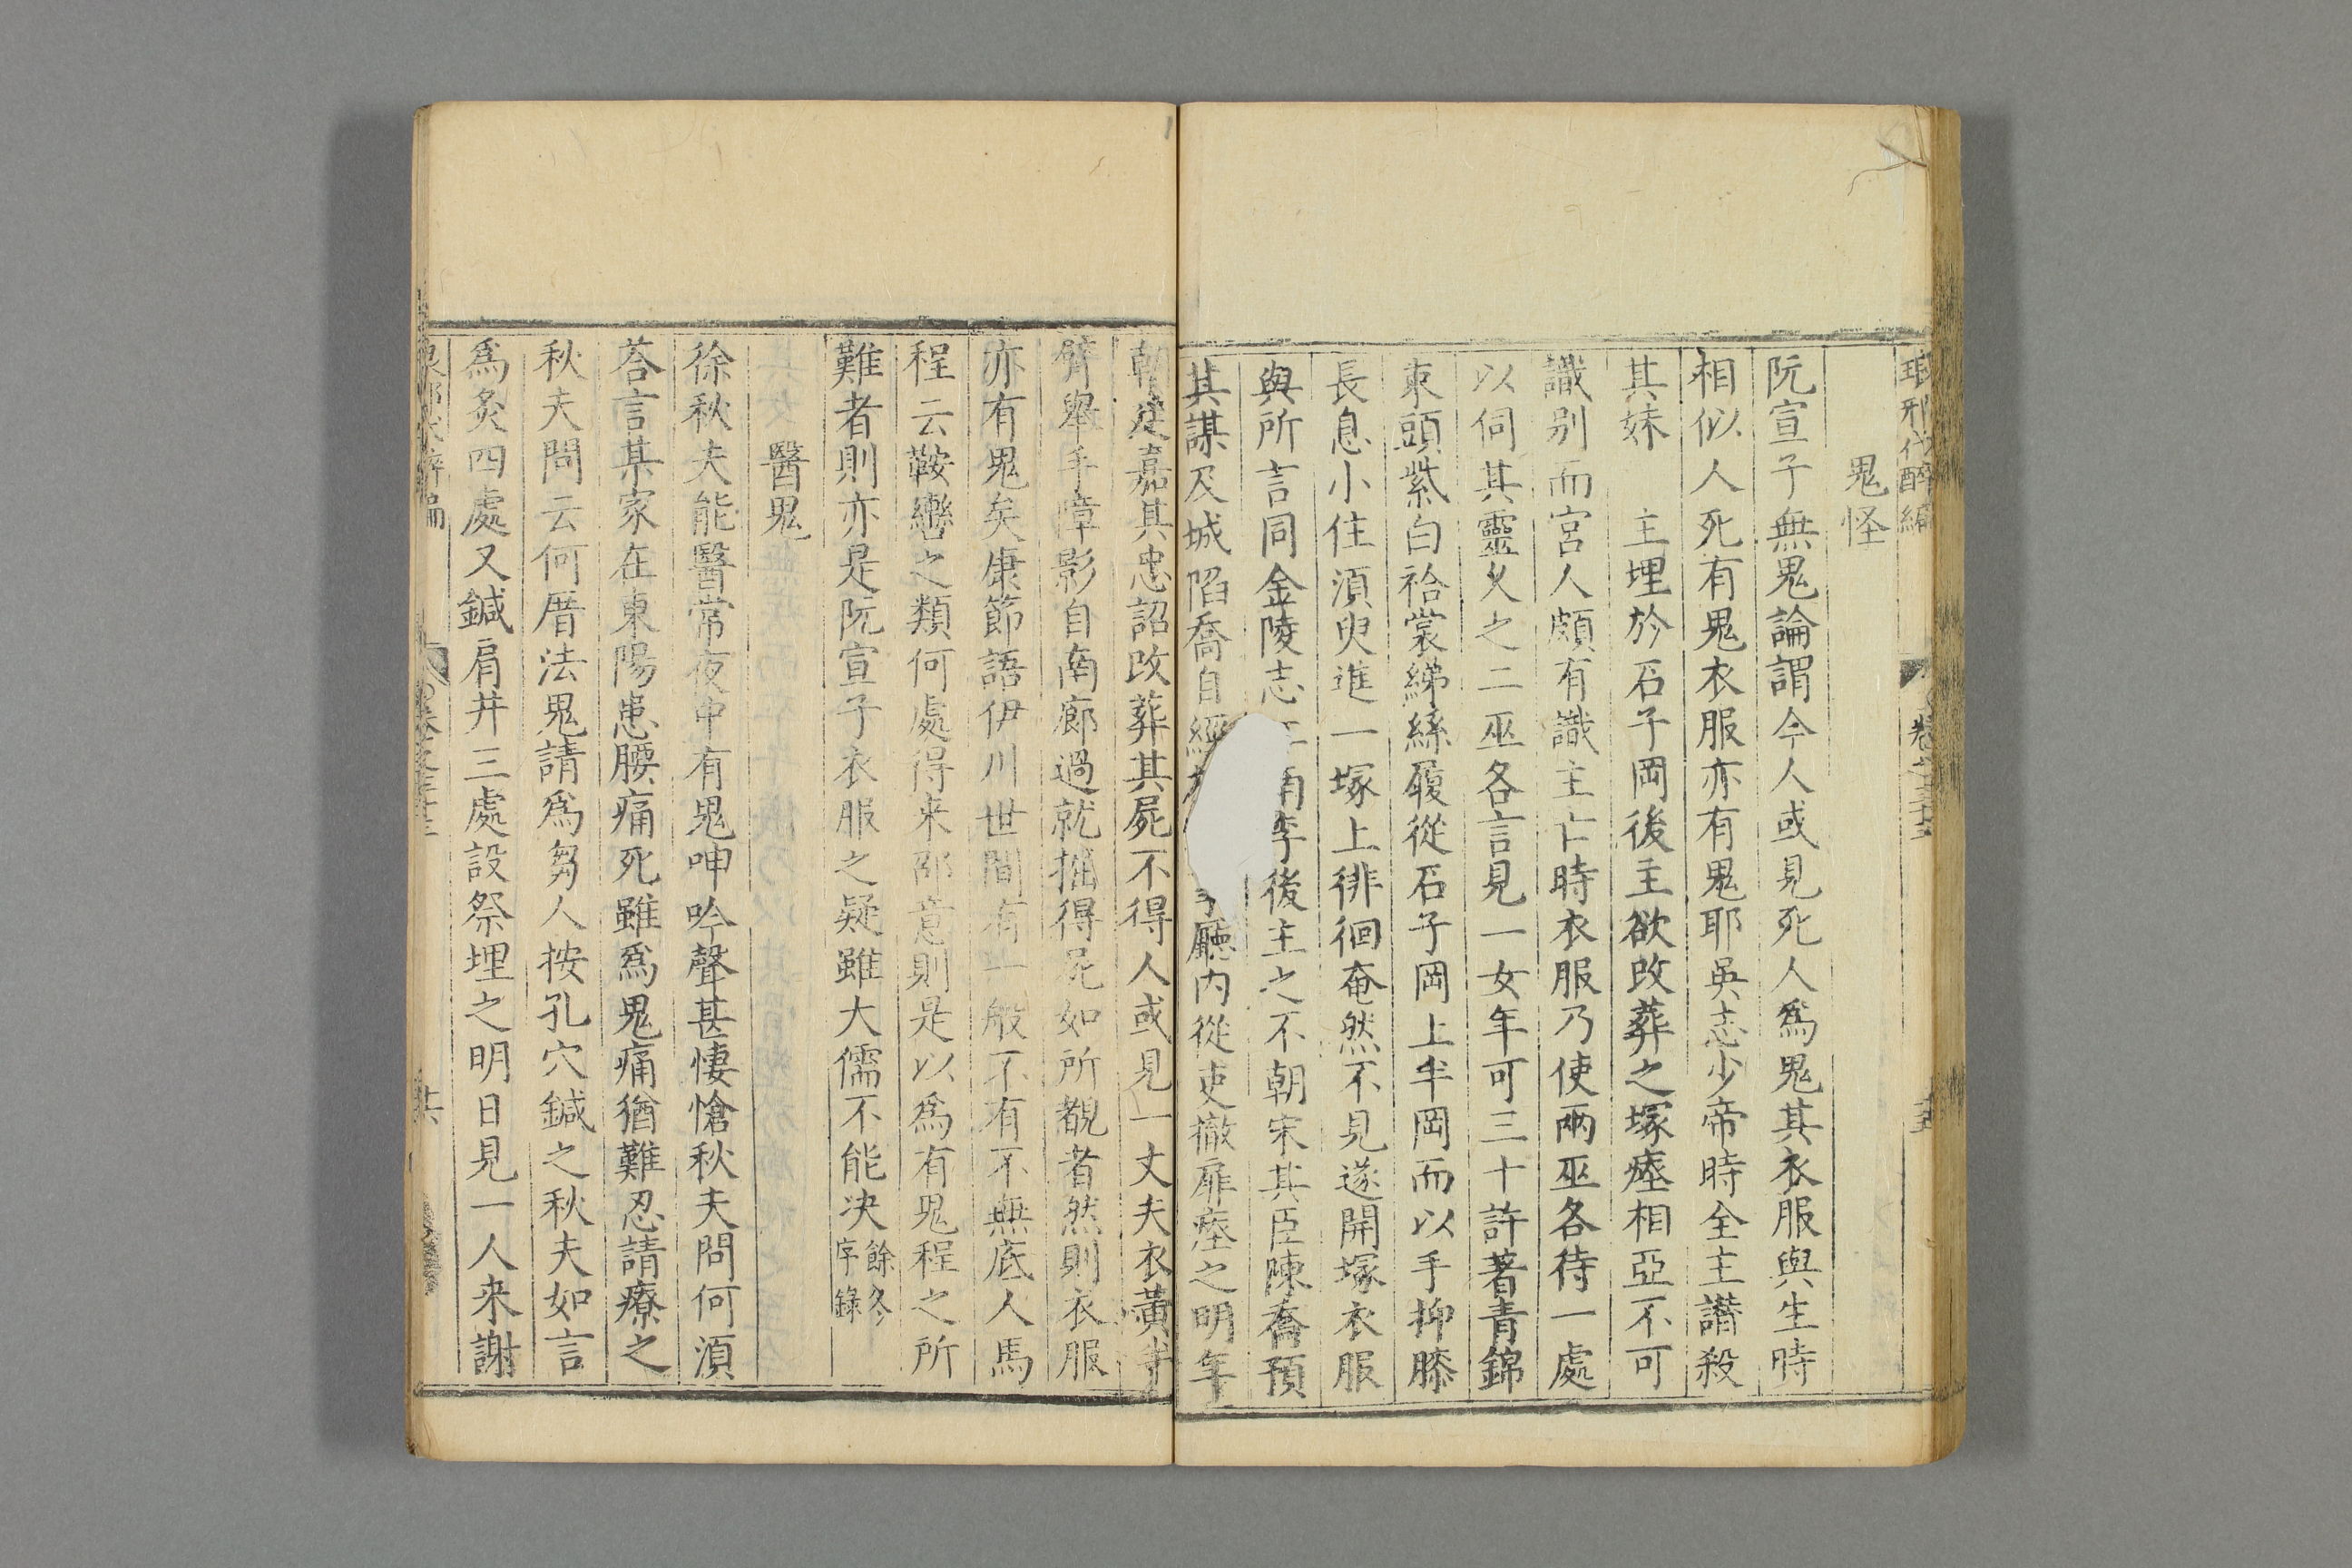 琅邪代醉編
卷之三十三
鬼怪
阮宣子無鬼論謂今人或見死人爲鬼其衣服與生時
相似人死有鬼衣服亦有鬼耶吳志少帝時全主譖殺
其妹 主埋於石子岡後主欲改葬之塚瘞相亞不可
識别而宮人頗有識主亡時衣服乃使兩巫各待一處
以伺其靈久之二巫各言見一女年可三十許著青錦
束頭紫白袷裳綈絲履從石子岡上半岡而以手抑膝
長息小住須臾進一塚上徘徊奄然不見遂開塚衣服
與所言同金陵志 南李後主之不朝宋其臣陳喬預
其謀及城陷喬自經 廳内從吏撤扉瘞之明年
朝廷嘉其忠詔改葬其屍不得人或見一丈夫衣黃半
臂舉手障影自南廊過就掘得屍如所覩者然則衣服
亦有鬼矣康節語伊川世間有一般不有不無底人馬
程云鞍轡之類何處得来邵意則是以爲有鬼程之所
難者則亦是阮宣子衣服之疑雖大儒不能决餘冬序錄
醫鬼
徐秋夫能醫常夜中有鬼呻吟聲甚悽愴秋夫問何須
荅言某家在東陽患腰痛死雖爲鬼痛猶難忍請療之
秋夫問云何厝法鬼請爲芻人按孔穴鍼之秋夫如言
爲炙四處又鍼肩井三處設祭埋之明日見一人来謝